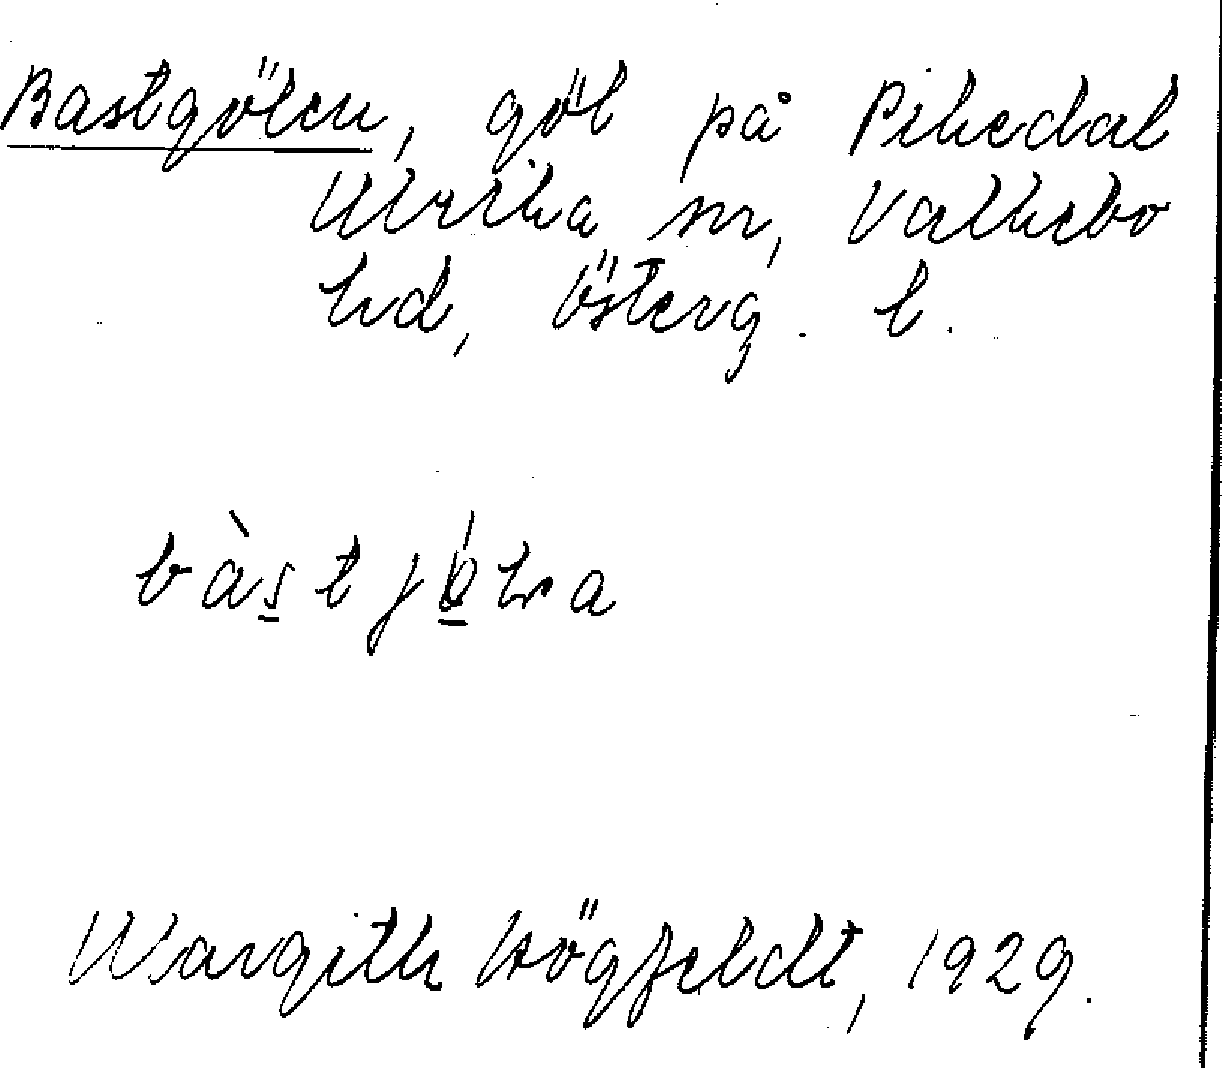 Bastgölen, göl på Pikedal
Ulrika sn, Valkebo
hd, Österg. l.
bàstjö́lna
Margith Högfeldt, 1929.